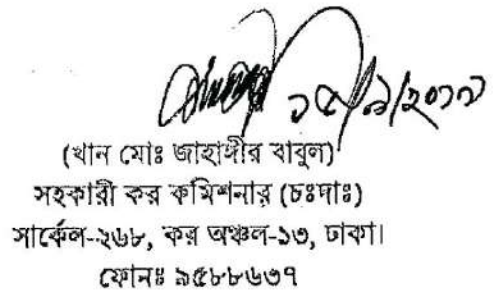 ১৫/১/২০১৭
(খান মোঃ জাহাঙ্গীর বাবুল)
সহকারী কর কমিশনার (চঃদাঃ)
সার্কেল-২৬৮, কর অঞ্চল-১৩, ঢাকা।
ফোনঃ ৯৫৮৮৬৩৭